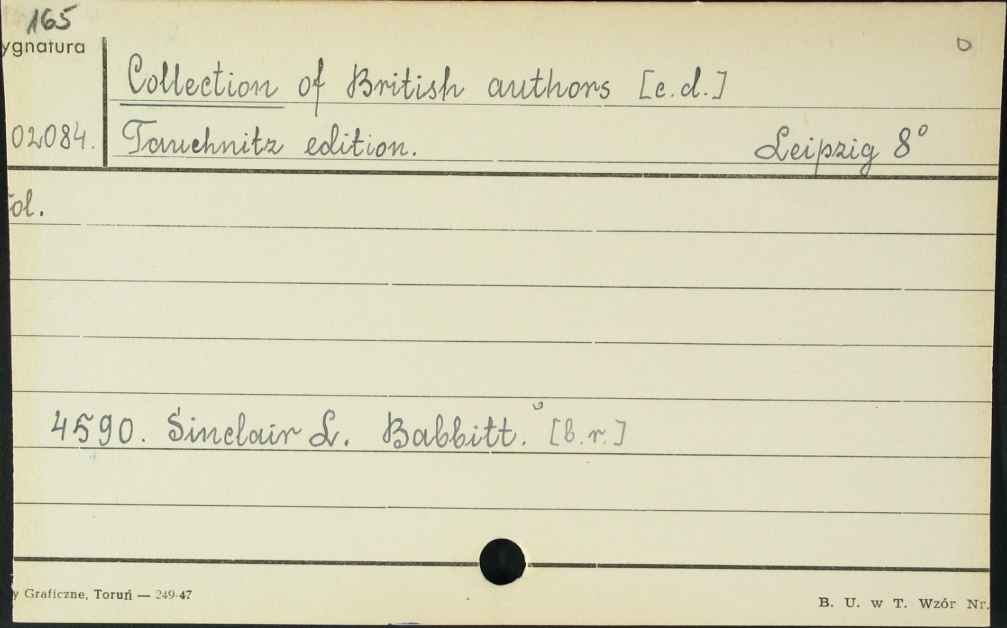 165
ygnatura
Collection of British authors [c.d.]
02084. Tauchnitz edition. Leipzig 8°
ol.
4590. Sinclair L. Babbitt. [b.r.]
y Graficzne, Toruń — 249-47
B. U. w T. Wzór Nr.